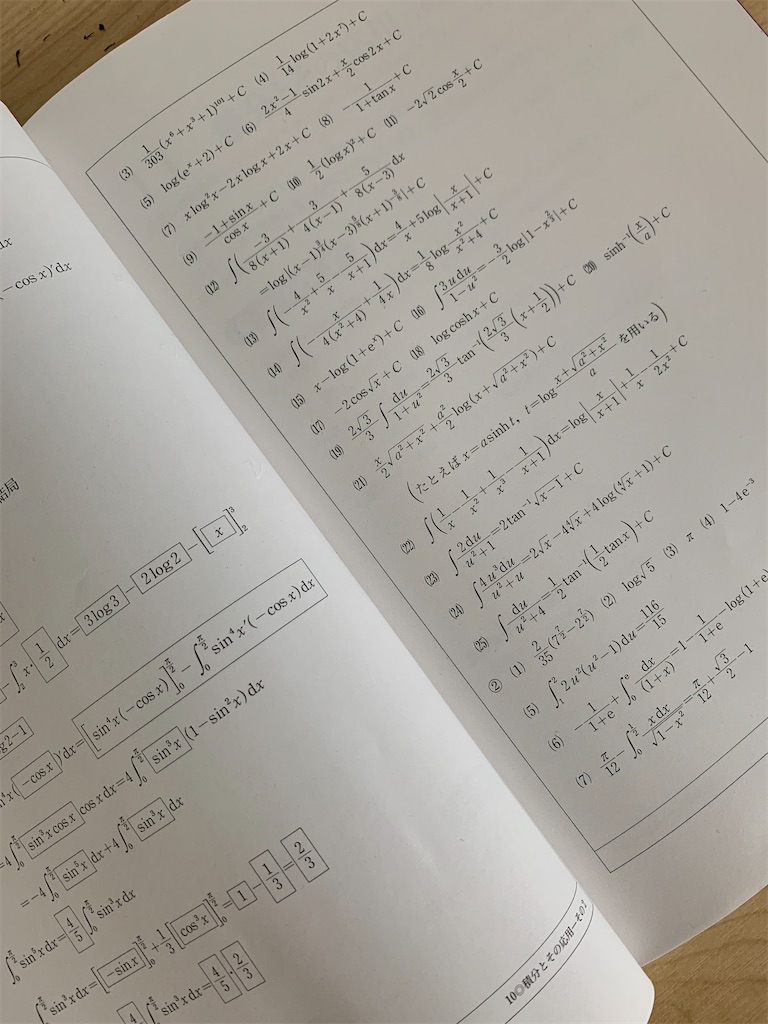 dx
(−cosx)′dx
結局
−∫₂³ x·1/2 dx=3log3−2log2−[x]₂³
g2−1
⁴x(−cosx)′dx=[sin⁴x(−cosx)]₀^{π/2}−∫₀^{π/2}sin⁴x′(−cosx)dx
=4∫₀^{π/2}sin³xcosx cosxdx=4∫₀^{π/2}sin³x(1−sin²x)dx
=−4∫₀^{π/2}sin⁵xdx+4∫₀^{π/2}sin³xdx
∫₀^{π/2}sin⁵xdx=4/5∫₀^{π/2}sin³xdx
∫₀^{π/2}sin³xdx=[−sinx]₀^{π/2}+1/3[cos³x]₀^{π/2}=1−1/3=2/3
4/ ∫₀^{π/2}sin³xdx=4/5·2/3
積分とその応用−その2
(3) 1/303(x⁶+x³+1)¹⁰¹+C (4) 1/14log(1+2x⁷)+C
(5) log(eˣ+2)+C (6) (2x²−1)/4 sin2x+x/2cos2x+C
(7) xlog²x−2xlogx+2x+C (8) 1/(1+tanx)+C
(9) (−1+sinx)/cosx+C (10) 1/2(logx)²+C (11) −2√2cos x/2+C
(12) ∫(−3/8(x+1)+3/4(x−1)+5/8(x−3))dx
=log|(x−1)^{3/4}(x−3)^{5/8}(x+1)^{−3/8}|+C
(13) ∫(−4/x²+5/x−5/(x+1))dx=4/x+5log|x/(x+1)|+C
(14) ∫(−x/4(x²+4)+1/4x)dx=1/8log x²/(x²+4)+C
(15) x−log(1+eˣ)+C (16) ∫3udu/(1−u²)=−3/2log|1−x^{2/3}|+C
(17) −2cos√x+C (18) logcoshx+C
(19) 2√3/3∫du/(1+u²)=2√3/3tan⁻¹(2√3/3(x+1/2))+C (20) sinh⁻¹(x/a)+C
(21) x/2√(a²+x²)+a²/2log(x+√(a²+x²))+C
(たとえば x=asinht, t=log (x+√(a²+x²))/a を用いる)
(22) ∫(1/x−1/x²+1/x³−1/(x+1))dx=log|x/(x+1)|+1/x−1/2x²+C
(23) ∫2du/(u²+1)=2tan⁻¹√(x−1)+C
(24) ∫4u³du/(u²+u)=2√x−4⁴√x+4log(⁴√x+1)+C
(25) ∫du/(u²+4)=1/2tan⁻¹(1/2tanx)+C
② (1) 2/35(7^{7/2}−2^{7/2}) (2) log√5 (3) π (4) 1−4e⁻³
(5) ∫₁²2u²(u²−1)du=116/15
(6) −1/(1+e)+∫₀ᵉdx/(1+x)=1−1/(1+e)−log(1+e)
(7) π/12−∫₀^{1/2}xdx/√(1−x²)=π/12+√3/2−1